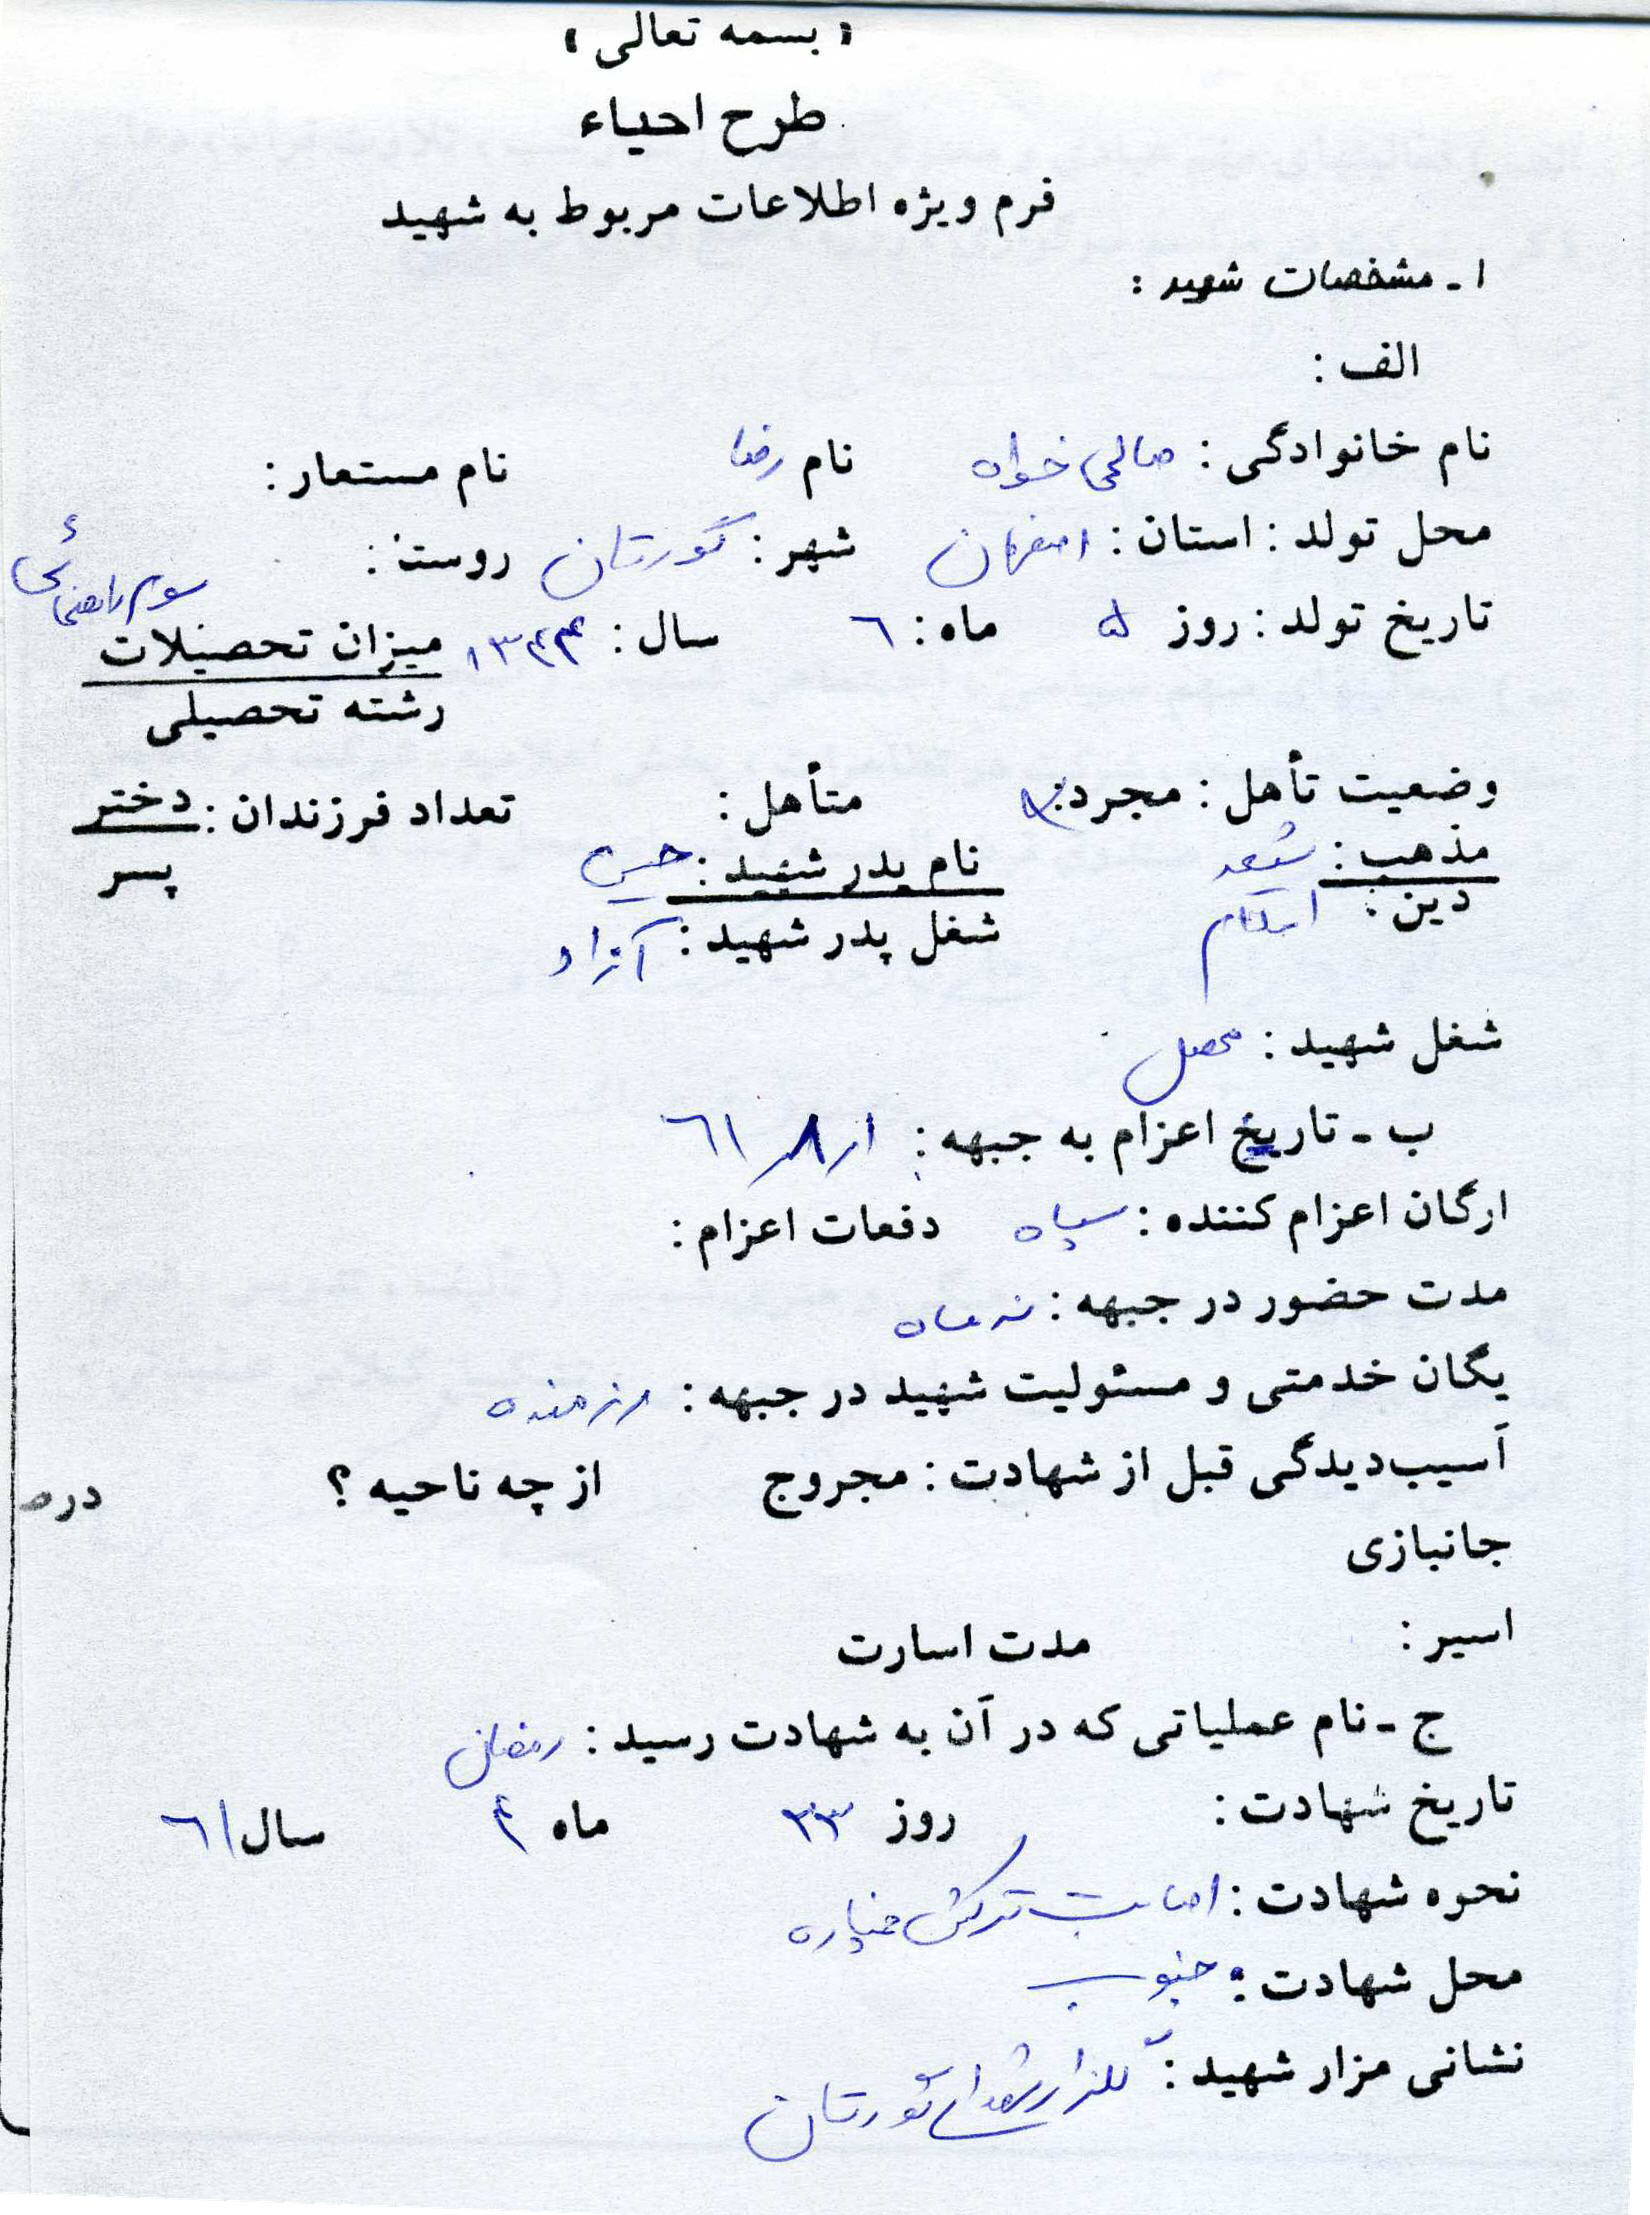 « بسمه تعالی »
طرح احیاء
فرم ویژه اطلاعات مربوط به شهید
۱ - مشخصات شهید :
الف :
نام خانوادگی : صالحی خواه نام رضا نام مستعار :
محل تولد : استان : اصفهان شهر : گورتان روستا :
تاریخ تولد : روز ۵ ماه : ٦ سال : ۱۳۴۴ میزان تحصیلات سوم راهنمائی
رشته تحصیلی
وضعیت تأهل : مجرد : متأهل : تعداد فرزندان : دختر
پسر
مذهب : شیعه نام پدر شهید :
دین : اسلام شغل پدر شهید : آزاد
شغل شهید : محصل
ب - تاریخ اعزام به جبهه : ٦۱
ارگان اعزام کننده : سپاه دفعات اعزام :
مدت حضور در جبهه : نه ماه
یگان خدمتی و مسئولیت شهید در جبهه : رزمنده
آسیب‌دیدگی قبل از شهادت : مجروح از چه ناحیه ؟ درص
جانبازی
اسیر : مدت اسارت
ج - نام عملیاتی که در آن به شهادت رسید : رمضان
تاریخ شهادت : روز ۲۳ ماه ۴ سال ٦۱
نحوه شهادت : اصابت ترکش خمپاره
محل شهادت : جنوب
نشانی مزار شهید : گلزار شهدای گورتان